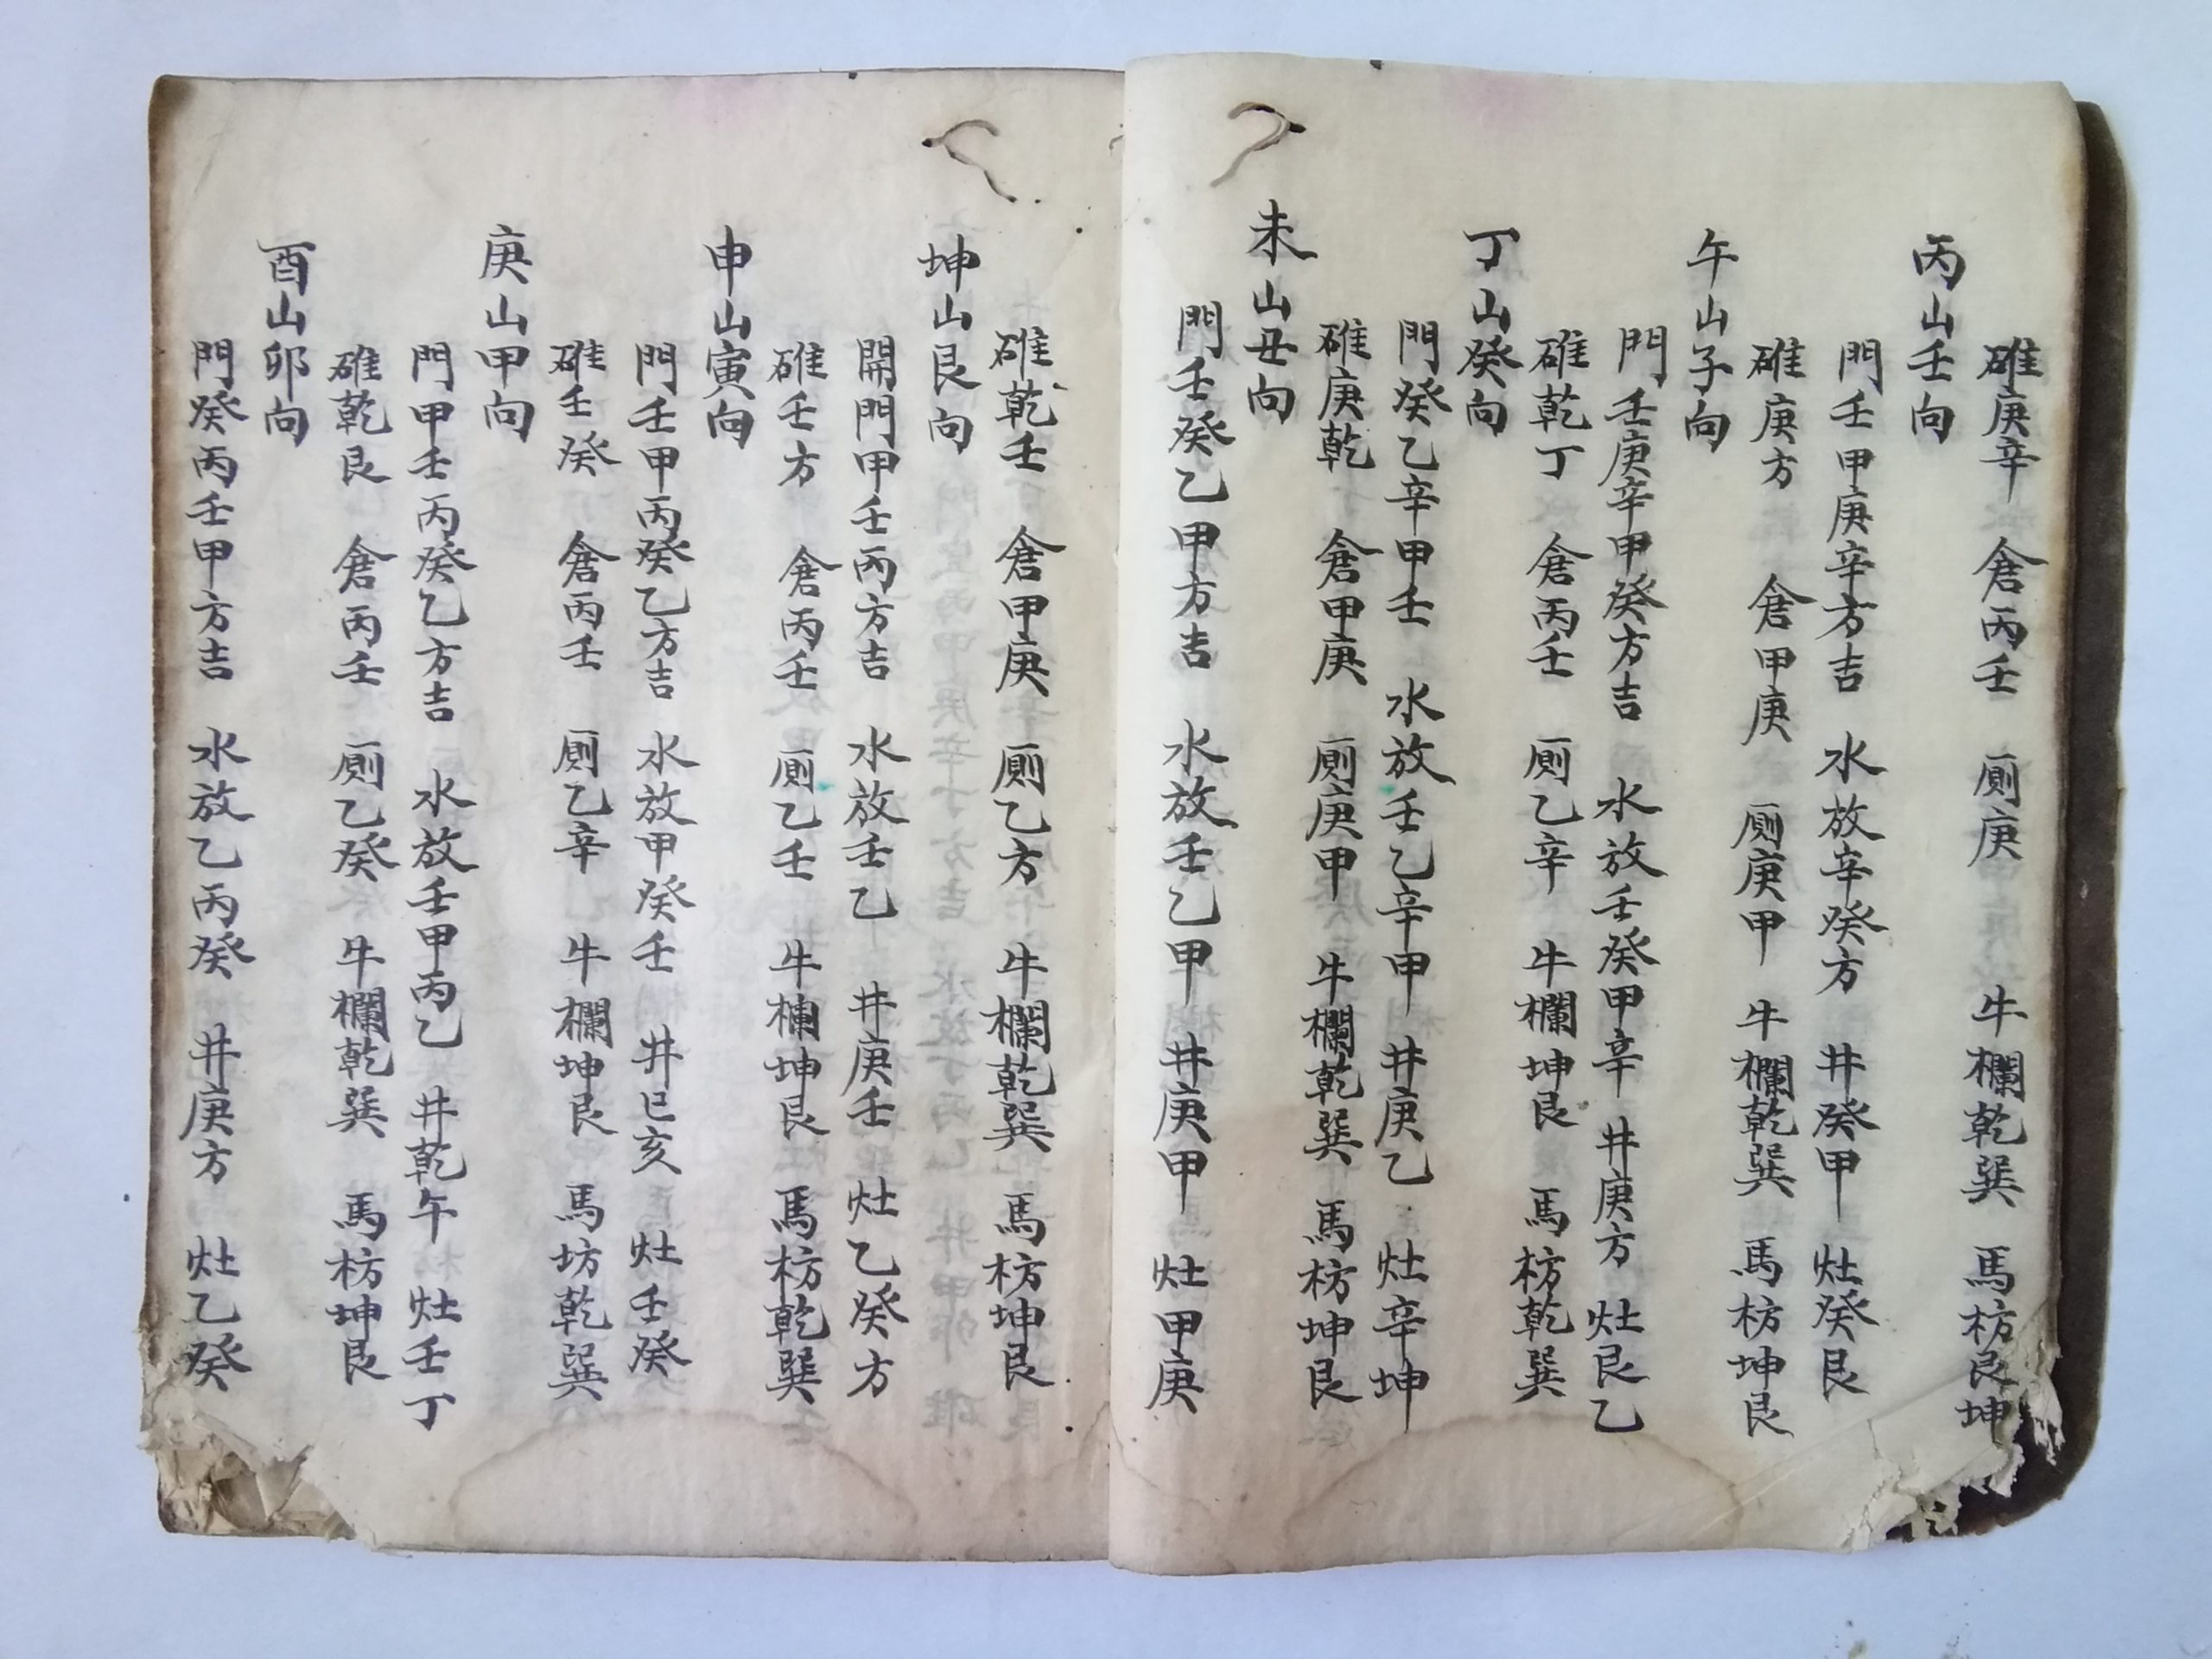 碓庚辛 倉丙壬 厕庚 牛欄乾巽 馬枋艮坤
丙山壬向
門壬甲庚辛方吉 水放辛癸方 井癸甲 灶癸艮
碓庚方 倉甲庚 厕庚甲 牛欄乾巽 馬枋坤艮
午山子向
門壬庚辛甲癸方吉 水放壬癸甲辛 井庚方 灶艮乙
碓乾丁 倉丙壬 厕乙辛 牛欄坤艮 馬枋乾巽
丁山癸向
門癸乙辛甲壬 水放壬乙辛甲 井庚乙 灶辛坤
碓庚乾 倉甲庚 厕庚甲 牛欄乾巽 馬枋坤艮
未山丑向
門壬癸乙甲方吉 水放壬乙甲 井庚甲 灶甲庚
碓乾壬 倉甲庚 厕乙方 牛欄乾巽 馬枋坤艮
坤山艮向
開門甲壬丙方吉 水放壬乙 井庚壬 灶乙癸方
碓壬方 倉丙壬 厕乙壬 牛欄坤艮 馬枋乾巽
申山寅向
門壬甲丙癸乙方吉 水放甲癸壬 井巳亥 灶壬癸
碓壬癸 倉丙壬 厕乙辛 牛欄坤艮 馬坊乾巽
庚山甲向
門甲壬丙癸乙方吉 水放壬甲丙乙 井乾午 灶壬丁
碓乾艮 倉丙壬 厕乙癸 牛欄乾巽 馬枋坤艮
酉山卯向
門癸丙壬甲方吉 水放乙丙癸 井庚方 灶乙癸